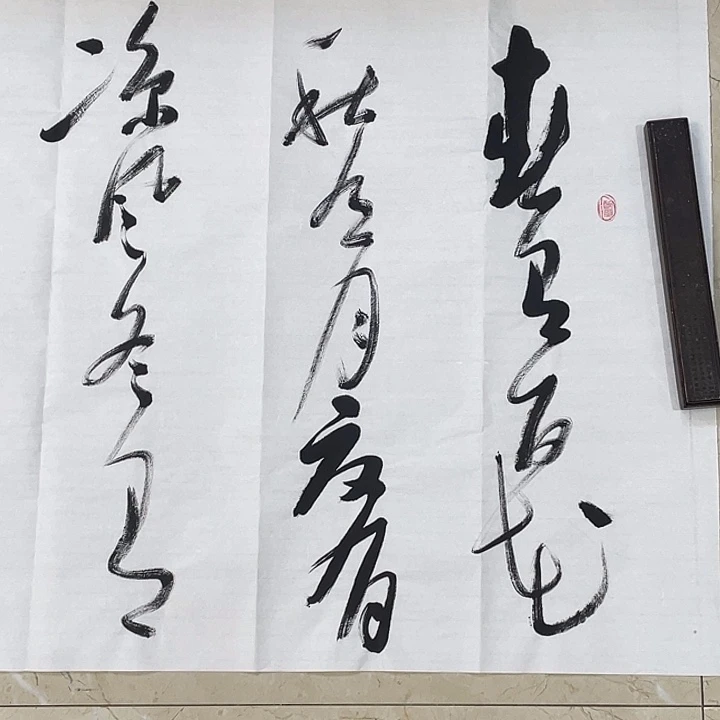 春有百花
秋有月夏有
凉风冬有